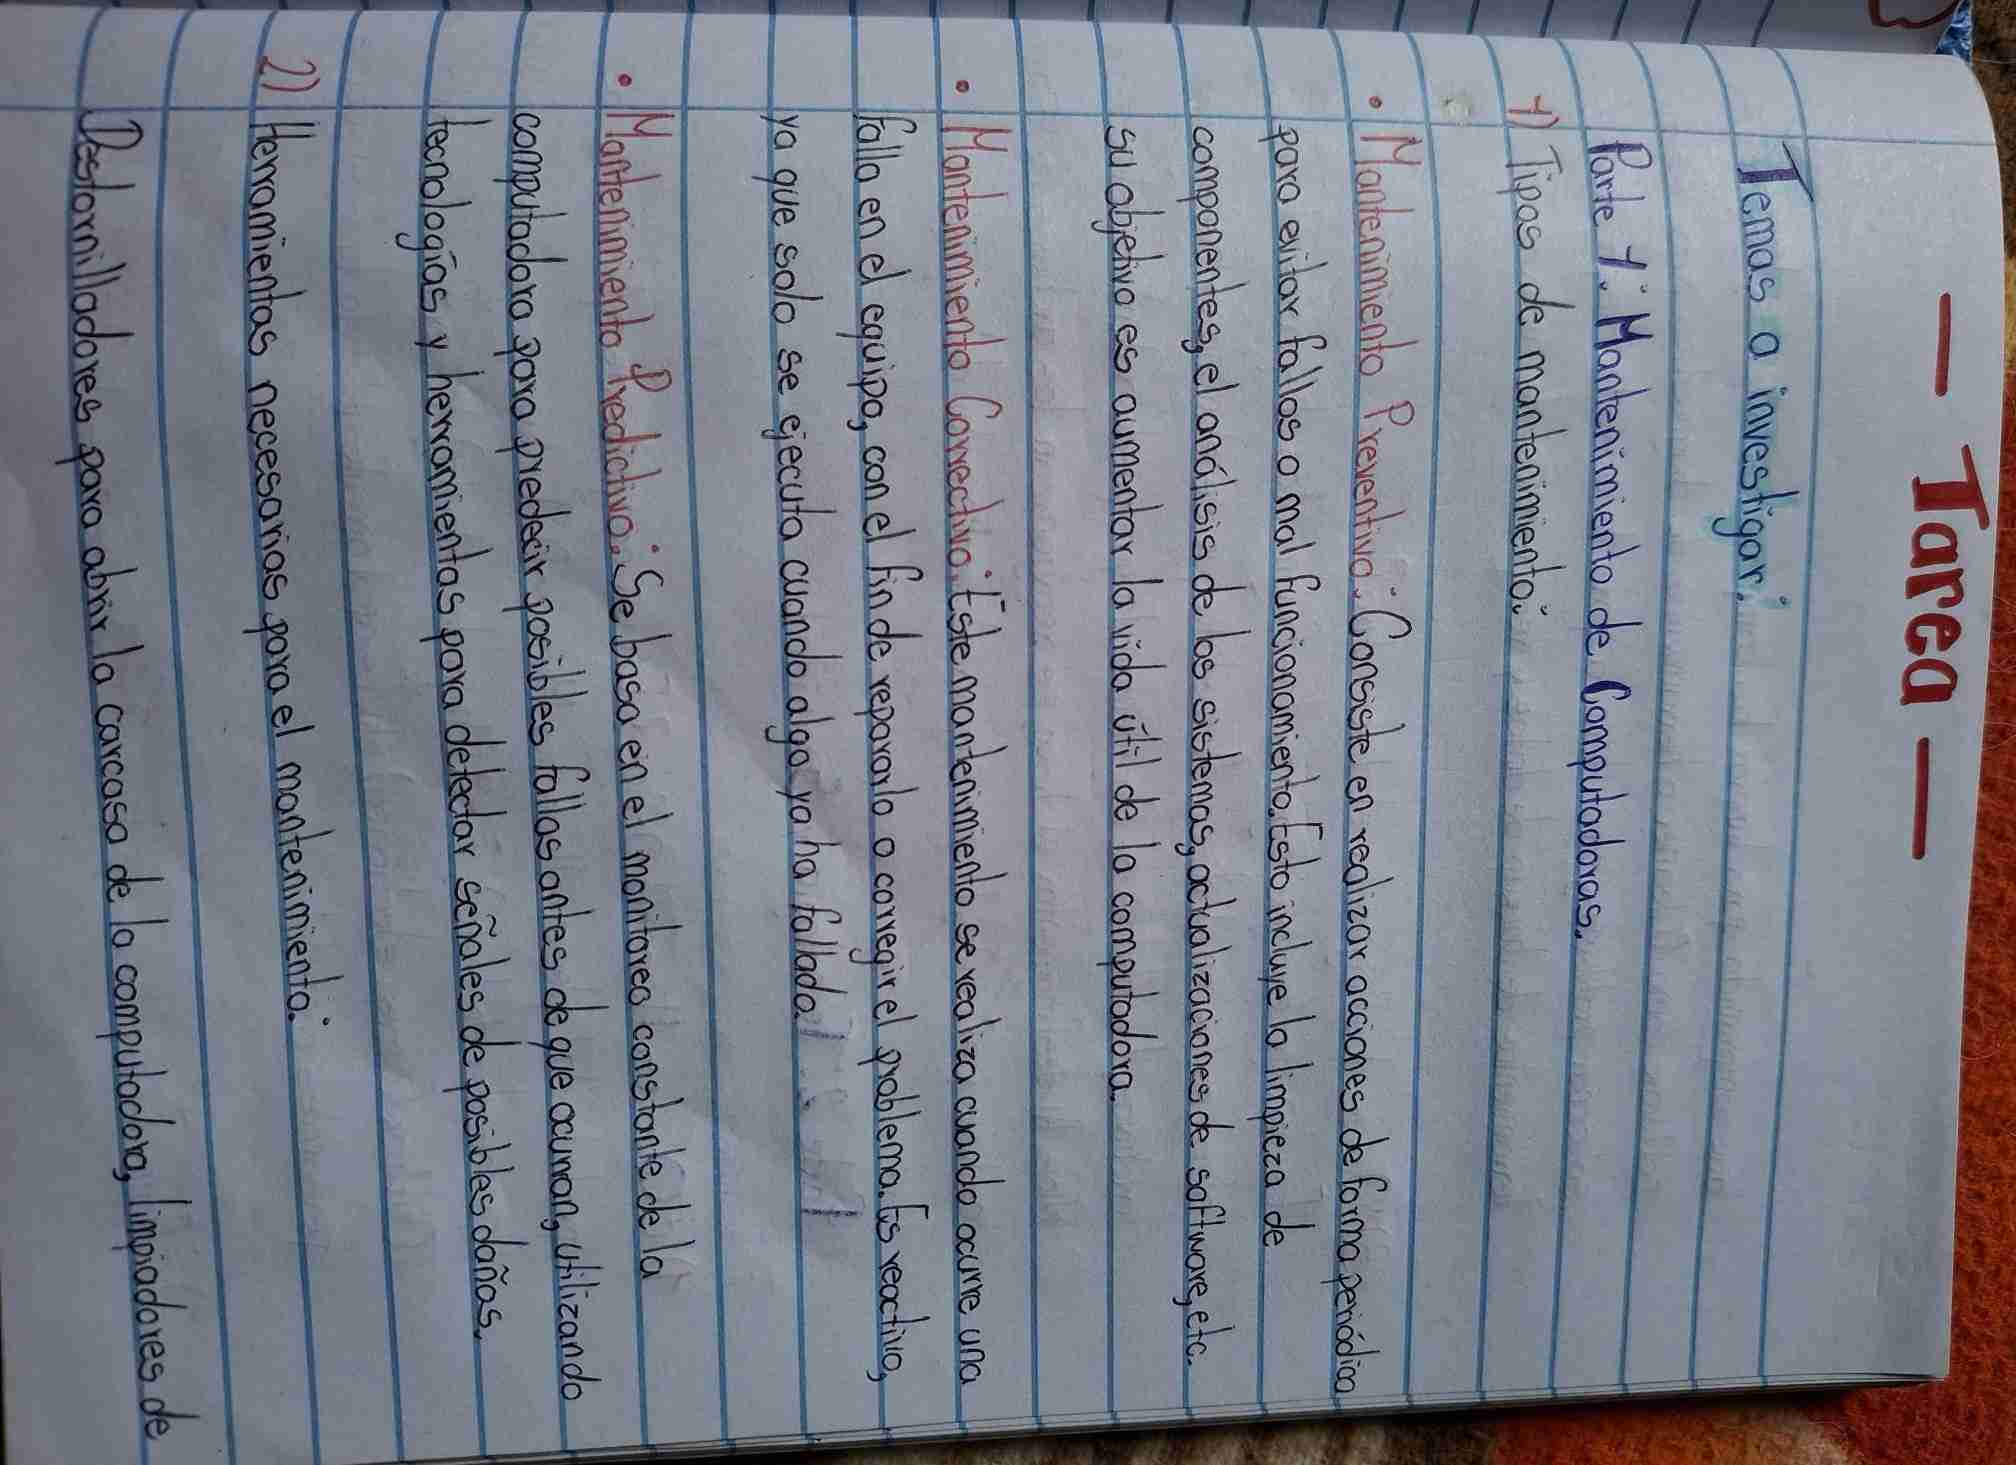 — Tarea —
Temas a investigar:
Parte 1: Mantenimiento de Computadoras.
1) Tipos de mantenimiento:
• Mantenimiento Preventivo: Consiste en realizar acciones de forma periódica
para evitar fallos o mal funcionamiento. Esto incluye la limpieza de
componentes, el análisis de los sistemas, actualizaciones de software, etc.
su objetivo es aumentar la vida útil de la computadora.
• Mantenimiento Correctivo: Este mantenimiento se realiza cuando ocurre una
falla en el equipo, con el fin de repararlo o corregir el problema. Es reactivo,
ya que solo se ejecuta cuando algo ya ha fallado.
• Mantenimiento Predictivo: Se basa en el monitoreo constante de la
computadora para predecir posibles fallas antes de que ocurran, utilizando
tecnologías y herramientas para detectar señales de posibles daños.
2) Herramientas necesarias para el mantenimiento:
Destornilladores para abrir la carcasa de la computadora, limpiadores de